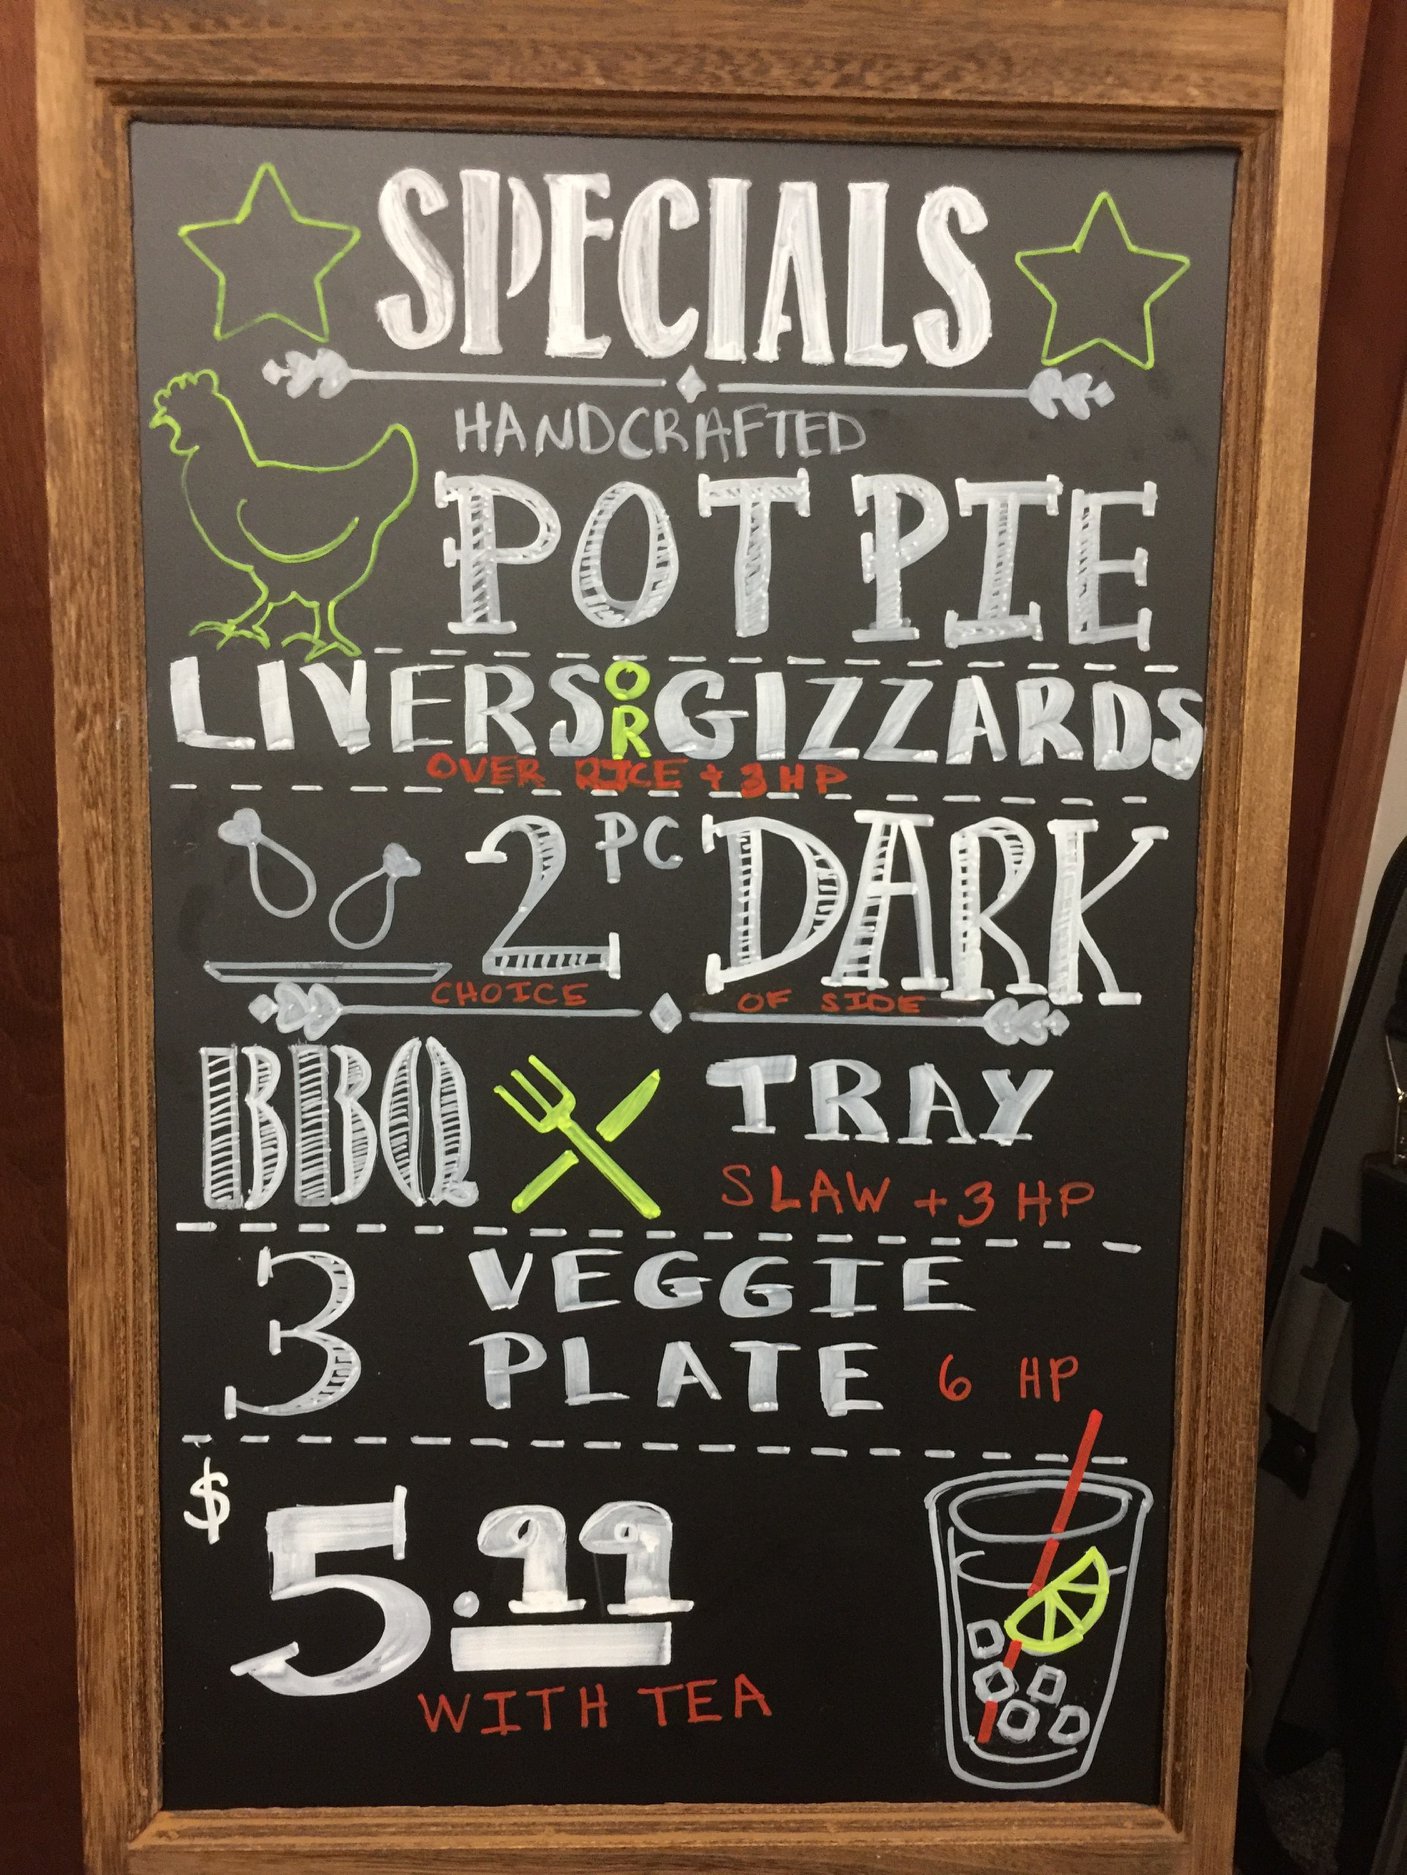 SPECIALS
HANDCRAFTED
POT PIE
LIVERS OR GIZZARDS
OVER RICE + 3 HP
2 PC DARK
CHOICE OF SIDE
BBQ TRAY
SLAW + 3 HP
3 VEGGIE
PLATE 6 HP
$5.99
WITH TEA